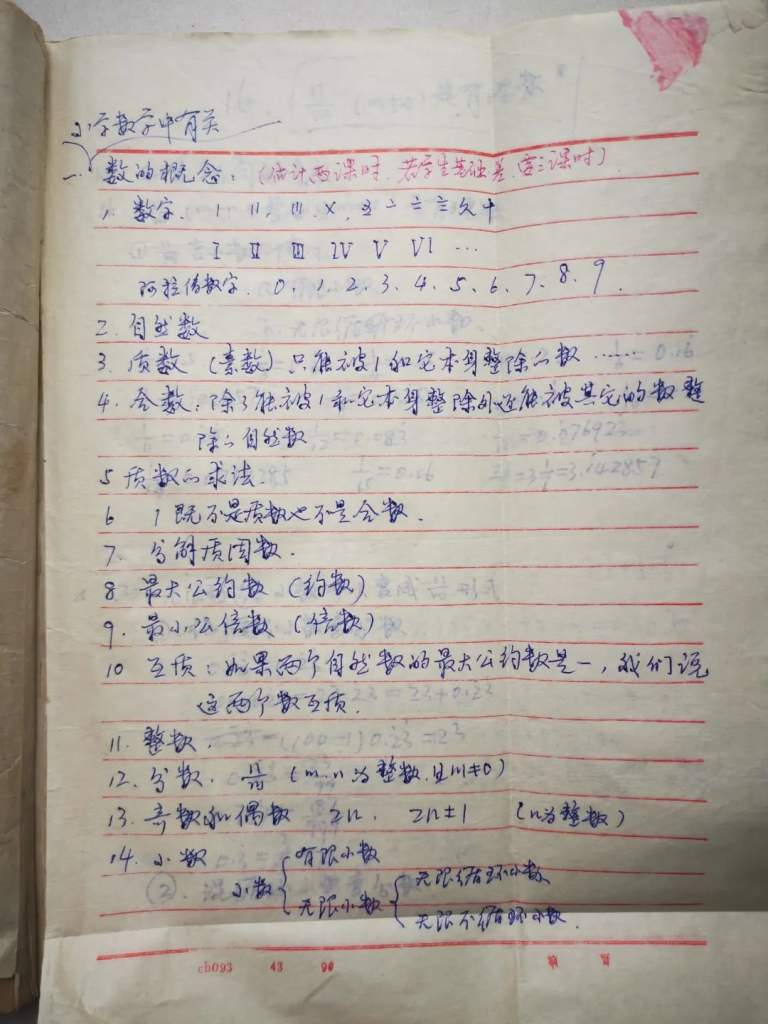 小学数学中有关
一、数的概念：（估计两课时．若学生基础差．需三课时）
1. 数字． 〡 〢 〣 〤 〥 〦 〧 〨 〩 十
Ⅰ Ⅱ Ⅲ Ⅳ Ⅴ Ⅵ …
阿拉伯数字．0．1．2．3．4．5．6．7．8．9．
2. 自然数
3. 质数（素数）只能被1和它本身整除的数……
4. 合数：除了能被1和它本身整除外还能被其它的数整
除的自然数
5 质数的求法：
6 1既不是质数也不是合数．
7. 分解质因数．
8 最大公约数（约数）
9. 最小公倍数（倍数）
10 互质：如果两个自然数的最大公约数是一，我们说
这两个数互质．
11. 整数．
12. 分数． n/m （m．n为整数．且m≠0）
13. 奇数和偶数 2n． 2n±1 （n为整数）
14. 小数
小数 { 有限小数
无限小数 { 无限循环小数
无限不循环小数．
ch093 43 90